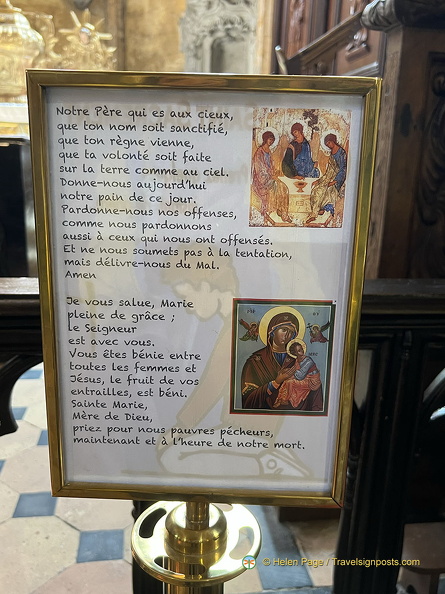 Notre Père qui es aux cieux,
que ton nom soit sanctifié,
que ton règne vienne,
que ta volonté soit faite
sur la terre comme au ciel.
Donne-nous aujourd'hui
notre pain de ce jour.
Pardonne-nous nos offenses,
comme nous pardonnons
aussi à ceux qui nous ont offensés.
Et ne nous soumets pas à la tentation,
mais délivre-nous du Mal.
Amen
Je vous salue, Marie
pleine de grâce ;
le Seigneur
est avec vous.
Vous êtes bénie entre
toutes les femmes et
Jésus, le fruit de vos
entrailles, est béni.
Sainte Marie,
Mère de Dieu,
priez pour nous pauvres pécheurs,
maintenant et à l'heure de notre mort.
© Helen Page / Travelsignposts.com